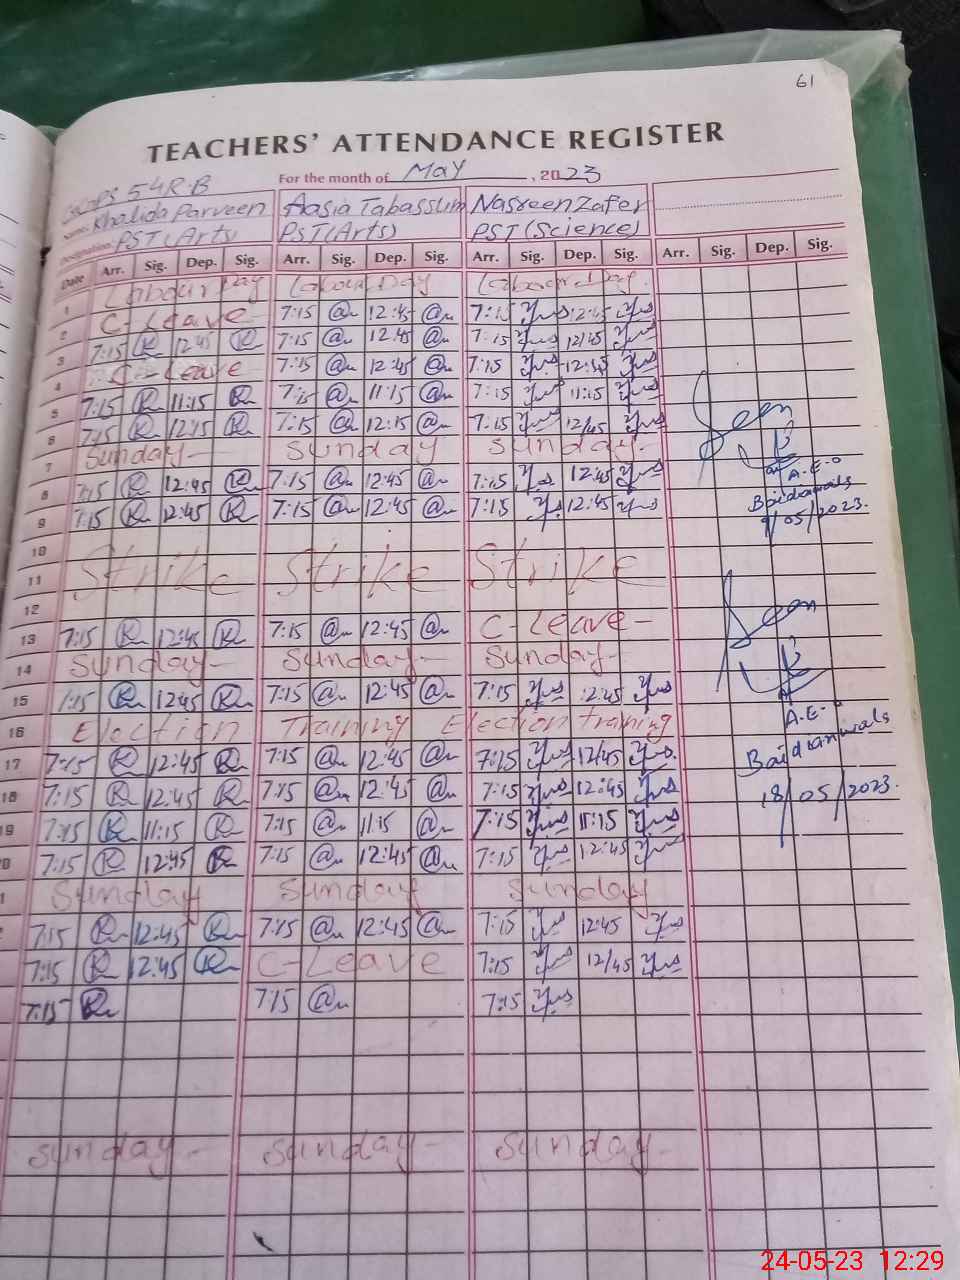 61
TEACHERS' ATTENDANCE REGISTER
For the month of May, 2023
GGPS 54R.B
Name: Khalida Parveen Aasia Tabassum Nasreen Zafer
Designation: PST (Arts) PST (Arts) PST (Science)
Date Arr. Sig. Dep. Sig. Arr. Sig. Dep. Sig. Arr. Sig. Dep. Sig. Arr. Sig. Dep. Sig.
1 Labour Day Labour Day Labour Day
2 C-Leave 7:15 12:45 7:15 12:45
3 7:15 12:45 7:15 12:45 7:15 12/45
4 C-Leave 7:15 12:45 7:15 12:45
5 7:15 11:15 7:15 11:15 7:15 11:15
6 7:15 12:15 7:15 12:15 7:15 12/45
7 Sunday- Sunday Sunday-
8 7:15 12:45 7:15 12:45 7:15 12:45
9 7:15 12:45 7:15 12:45 7:15 12:45
10
11 Strike Strike Strike
12
13 7:15 12:45 7:15 12:45 C-Leave-
14 Sunday- Sunday- Sunday-
15 7:15 12:45 7:15 12:45 7:15 12:45
16 Election Training Election training
17 7:15 12:45 7:15 12:45 7:15 12/45
18 7:15 12:45 7:15 12:45 7:15 12:45
19 7:15 11:15 7:15 11:15 7:15 11:15
20 7:15 12:45 7:15 12:45 7:15 12:45
1 Sunday Sunday Sunday
2 7:15 12:45 7:15 12:45 7:15 12:45
7:15 12:45 C-Leave 7:15 12/45
7:15 7:15 7:15
Sunday- Sunday- Sunday-
Seen
A.E.O
9/05/2023.
Seen
A.E.
18/05/2023.
24-05-23 12:29